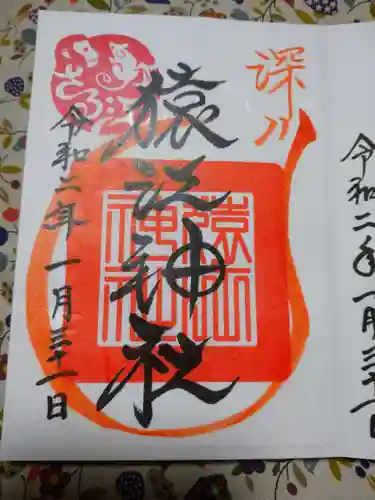 深川
猿江神社
令和二年一月三十一日
さる江
令和二年一月三十一日